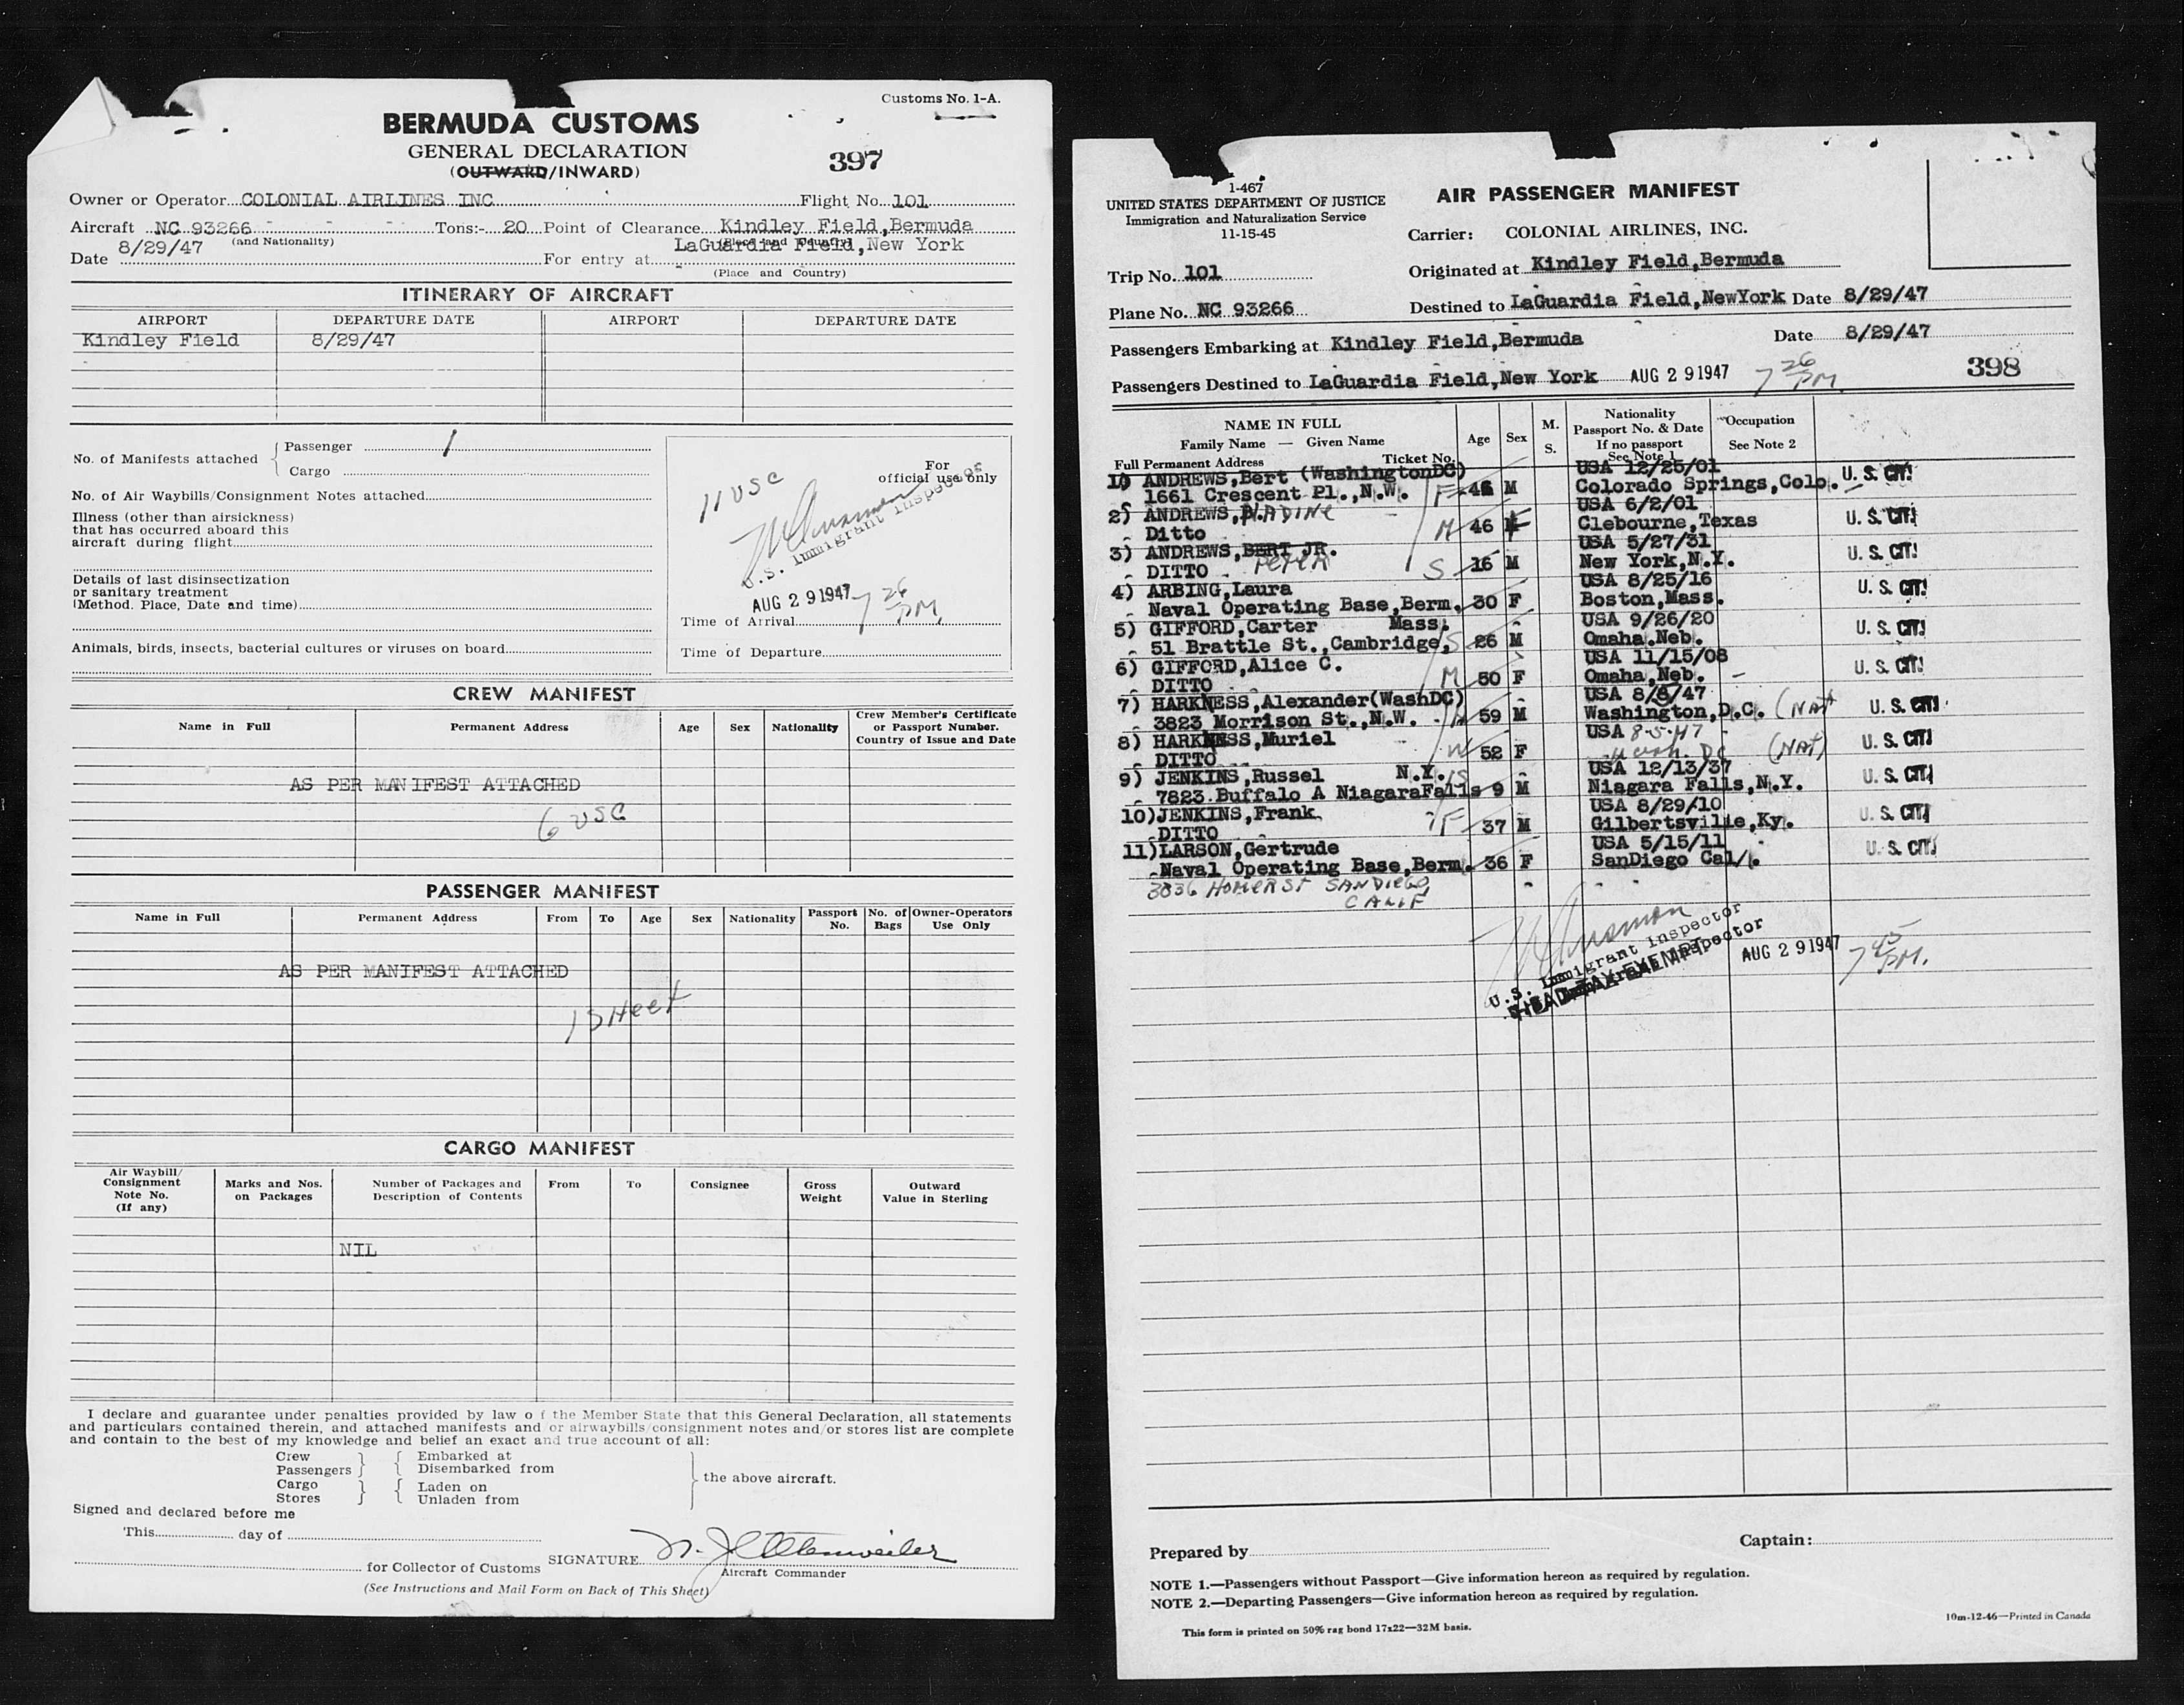 Customs No. 1-A.
BERMUDA CUSTOMS
GENERAL DECLARATION
397
(OUTWARD/INWARD)
Owner or Operator COLONIAL AIRLINES INC Flight No. 101
Aircraft NC 93266 Tons:- 20 Point of Clearance Kindley Field,Bermuda
(and Nationality) (Place and Country)
Date 8/29/47 For entry at LaGuardia Field,New York
(Place and Country)
ITINERARY OF AIRCRAFT
AIRPORT DEPARTURE DATE AIRPORT DEPARTURE DATE
Kindley Field 8/29/47
No. of Manifests attached Passenger 1
Cargo
No. of Air Waybills/Consignment Notes attached
Illness (other than airsickness)
that has occurred aboard this
aircraft during flight
Details of last disinsectization
or sanitary treatment
(Method. Place, Date and time)
Animals, birds, insects, bacterial cultures or viruses on board
For
official use only
11 USC
U.S. Immigrant Inspector
AUG 29 1947 7 26 PM
Time of Arrival
Time of Departure
CREW MANIFEST
Name in Full Permanent Address Age Sex Nationality Crew Member's Certificate
or Passport Number.
Country of Issue and Date
AS PER MANIFEST ATTACHED
6 USC
PASSENGER MANIFEST
Name in Full Permanent Address From To Age Sex Nationality Passport No. No. of Bags Owner-Operators Use Only
AS PER MANIFEST ATTACHED
1 SHeet
CARGO MANIFEST
Air Waybill/
Consignment
Note No.
(If any)
Marks and Nos.
on Packages
Number of Packages and
Description of Contents
From To Consignee Gross
Weight
Outward
Value in Sterling
NIL
I declare and guarantee under penalties provided by law of the Member State that this General Declaration, all statements
and particulars contained therein, and attached manifests and or airwaybills/consignment notes and/or stores list are complete
and contain to the best of my knowledge and belief an exact and true account of all:
Crew Embarked at
Passengers Disembarked from
the above aircraft.
Cargo Laden on
Stores Unladen from
Signed and declared before me
This day of
for Collector of Customs SIGNATURE
Aircraft Commander
(See Instructions and Mail Form on Back of This Sheet)
1-467
UNITED STATES DEPARTMENT OF JUSTICE
Immigration and Naturalization Service
11-15-45
AIR PASSENGER MANIFEST
Carrier: COLONIAL AIRLINES, INC.
Trip No. 101 Originated at Kindley Field,Bermuda
Plane No. NC 93266 Destined to LaGuardia Field,NewYork Date 8/29/47
Passengers Embarking at Kindley Field,Bermuda Date 8/29/47
Passengers Destined to LaGuardia Field,New York AUG 29 1947 7 26 PM 398
NAME IN FULL
Family Name — Given Name
Full Permanent Address Ticket No.
Age Sex M. S.
Nationality
Passport No. & Date
If no passport
See Note 1
Occupation
See Note 2
1) ANDREWS,Bert (WashingtonDC) USA 12/25/01
1661 Crescent Pl.,N.W. F 46 M Colorado Springs,Colo. U. S. CIT!
2) ANDREWS, NADINE USA 6/2/01
Ditto M 46 F Clebourne,Texas U. S. CIT!
3) ANDREWS,BERT JR. USA 5/27/31
DITTO PETER S 16 M New York,N.Y. U. S. CIT!
4) ARBING,Laura USA 8/25/16
Naval Operating Base,Berm. 30 F Boston,Mass. U. S. CIT!
5) GIFFORD,Carter Mass. USA 9/26/20
51 Brattle St.,Cambridge, S 26 M Omaha,Neb. U. S. CIT!
6) GIFFORD,Alice C. USA 11/15/08
DITTO M 50 F Omaha,Neb. U. S. CIT!
7) HARKNESS,Alexander(WashDC) USA 8/8/47
3823 Morrison St.,N.W. 59 M Washington,D.C. (NAT U. S. CIT!
8) HARKNESS,Muriel USA 8-5-47
DITTO W 52 F Wash. DC (NAT) U. S. CIT!
9) JENKINS,Russel N.Y. S USA 12/13/37
7823 Buffalo A NiagaraFalls 9 M Niagara Falls,N.Y. U. S. CIT!
10)JENKINS,Frank USA 8/29/10
DITTO F 37 M Gilbertsville,Ky. U. S. CIT!
11)LARSON,Gertrude USA 5/15/11
Naval Operating Base,Berm. 36 F SanDiego Cal. U. S. CIT!
3836 HOMER ST SAN DIEGO,
CALIF
U.S. Immigrant Inspector
HEAD TAX EXEMPT
AUG 29 1947 7 45 PM.
Prepared by Captain:
NOTE 1.—Passengers without Passport—Give information hereon as required by regulation.
NOTE 2.—Departing Passengers—Give information hereon as required by regulation.
10m-12-46—Printed in Canada
This form is printed on 50% rag bond 17x22—32M basis.